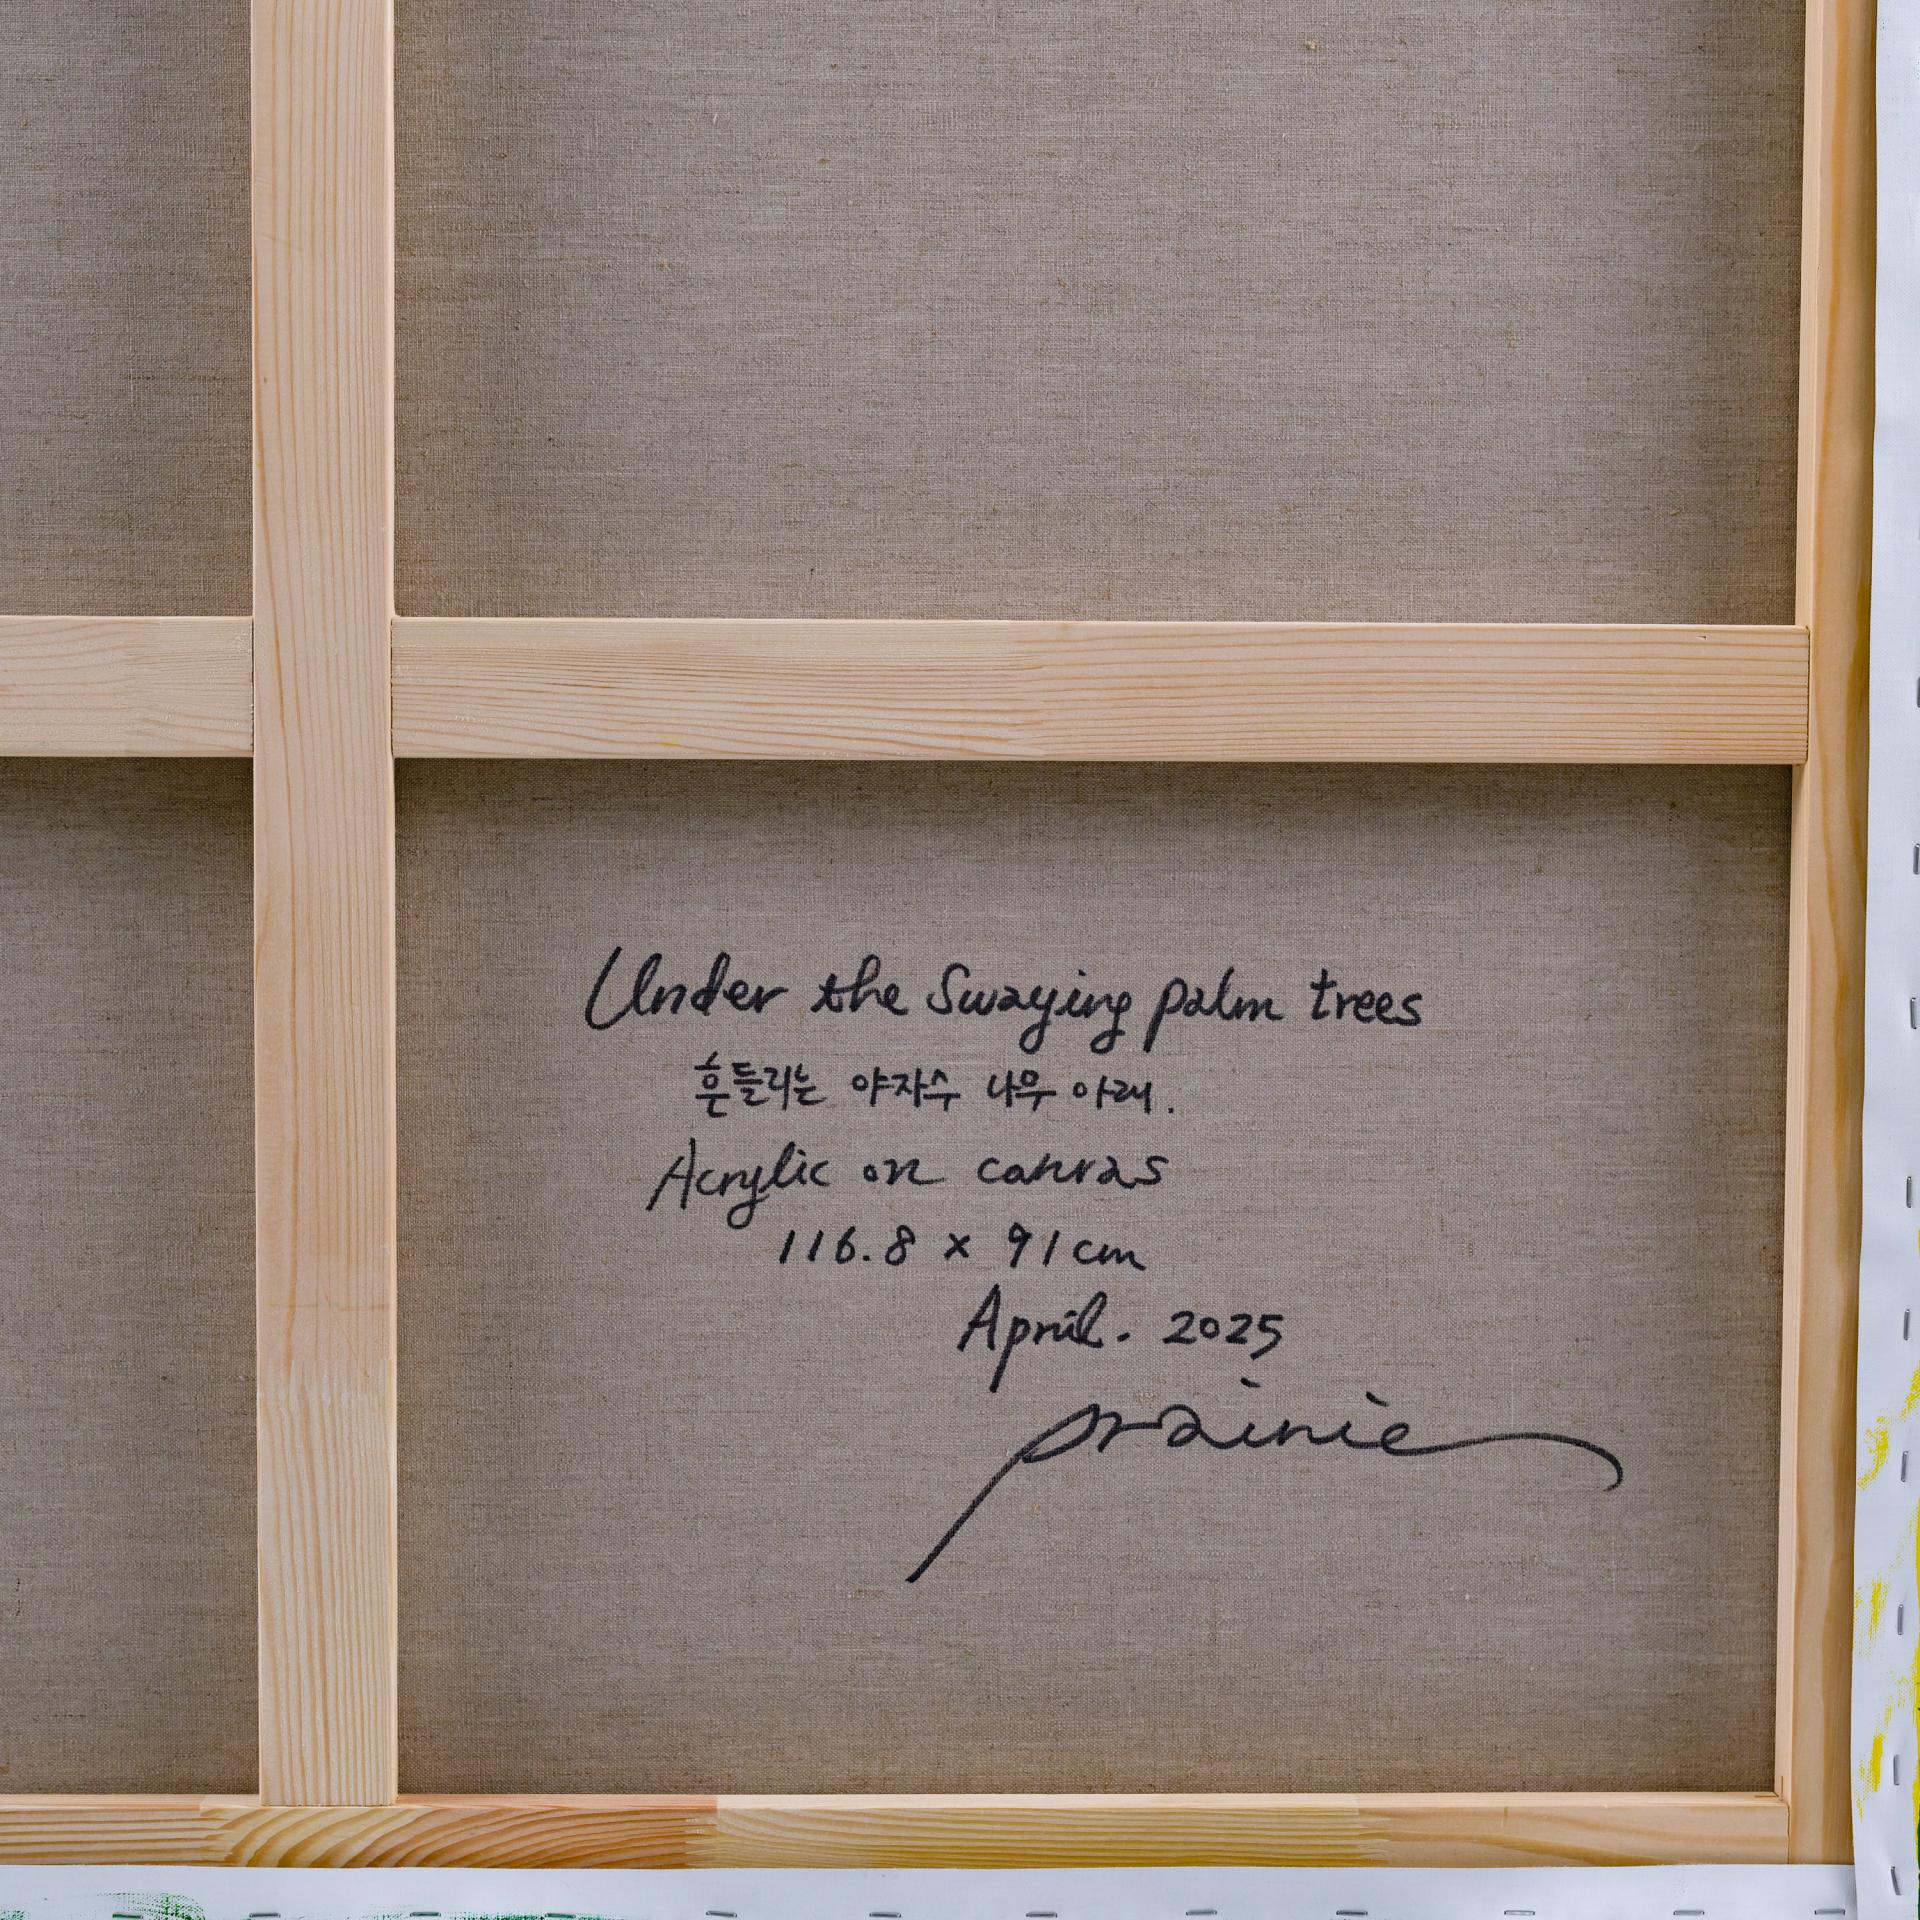 Under the Swaying palm trees
흔들리는 야자수 나무 아래.
Acrylic on canvas
116.8 x 91cm
April. 2025
prairie